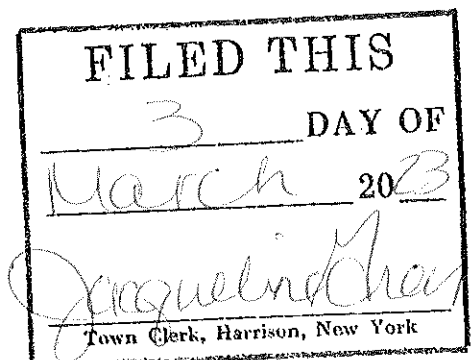 FILED THIS
3 DAY OF
March 2023
Jacqueline
Town Clerk, Harrison, New York